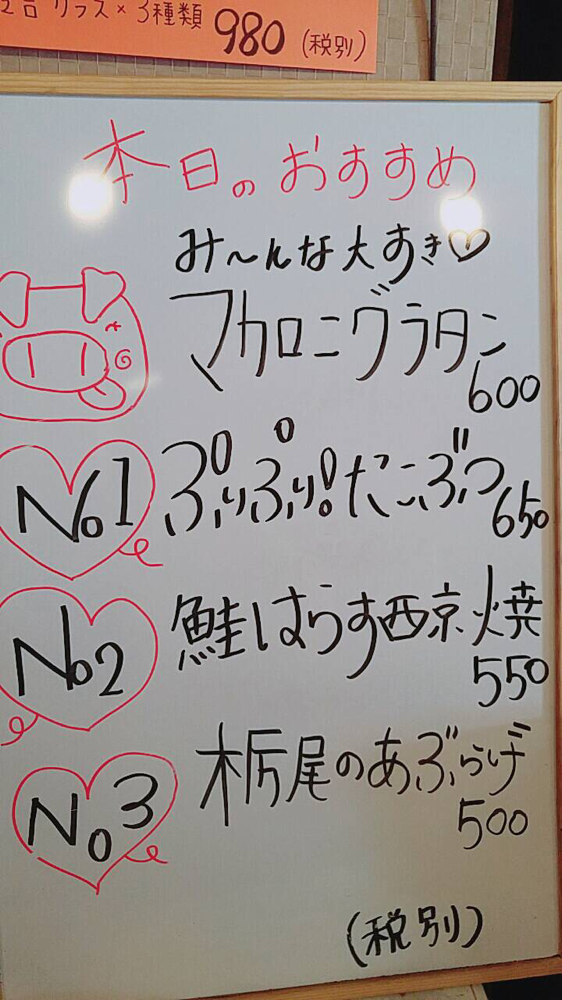 グラス×3種類 980 (税別)
本日のおすすめ
み〜んな大すき♡
マカロニグラタン
600
No1 ぷりぷり!たこぶつ
650
No2 鮭はらす西京焼
550
No3 栃尾のあぶらげ
500
(税別)